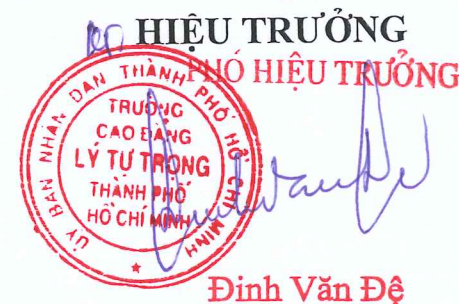 HIỆU TRƯỞNG
PHÓ HIỆU TRƯỞNG
ỦY BAN NHÂN DÂN THÀNH PHỐ HỒ CHÍ MINH
TRƯỜNG
CAO ĐẲNG
LÝ TỰ TRỌNG
THÀNH PHỐ
HỒ CHÍ MINH
Đinh Văn Đệ